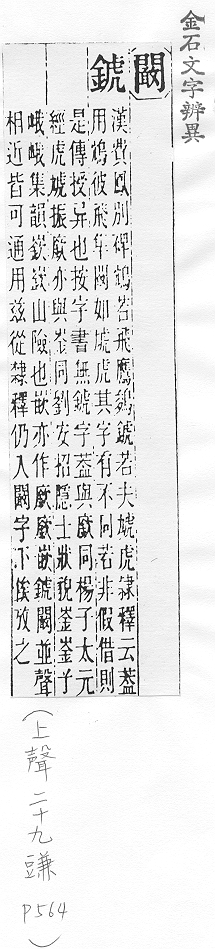 金石文字辨異
闞
䖔
漢費鳳別碑鴥若飛鷹鷂䖔若夫虓虎隸釋云蓋
用鴥彼飛隼闞如虓虎其字有不同若非假借則
是傳授異也按字書無䖔字蓋與㕡同楊子太元
經虎虓振㕡亦與崟同劉安招隱士狀貌崟崟子
峨峨集韻嶔㟢山險也嵌亦作㕡㕡嵌䖔闞並聲
相近皆可通用茲從隸釋仍入闞字下俟攷之
(上聲二十九豏
P564
)